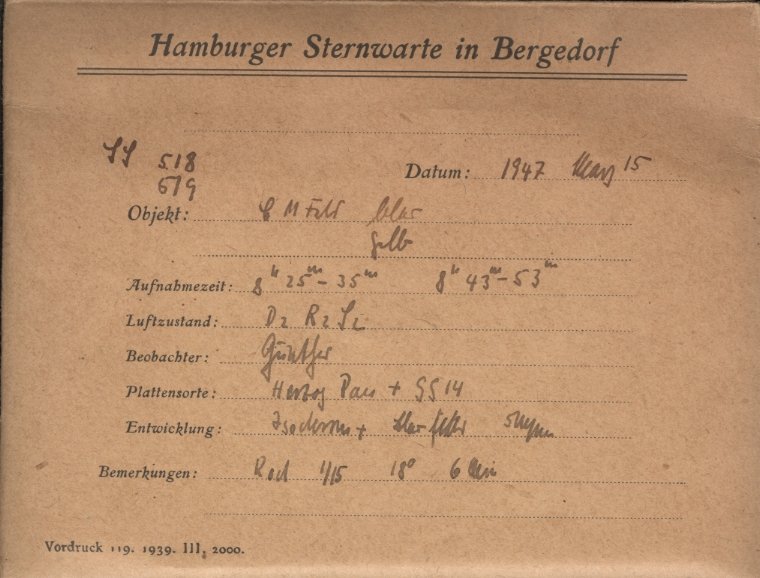 Hamburger Sternwarte in Bergedorf
SS 518
519
Datum: 1947 März 15
Objekt: C M Feld blau
gelb
Aufnahmezeit: 8h 25m – 35m 8h 43m – 53m
Luftzustand: D2 R2 S2
Beobachter: Günther
Plattensorte: Herzog Pan + GG 14
Entwicklung: Isochrom +
Bemerkungen: Rod 1/15 18° 6 Min
Vordruck 119. 1939. III. 2000.